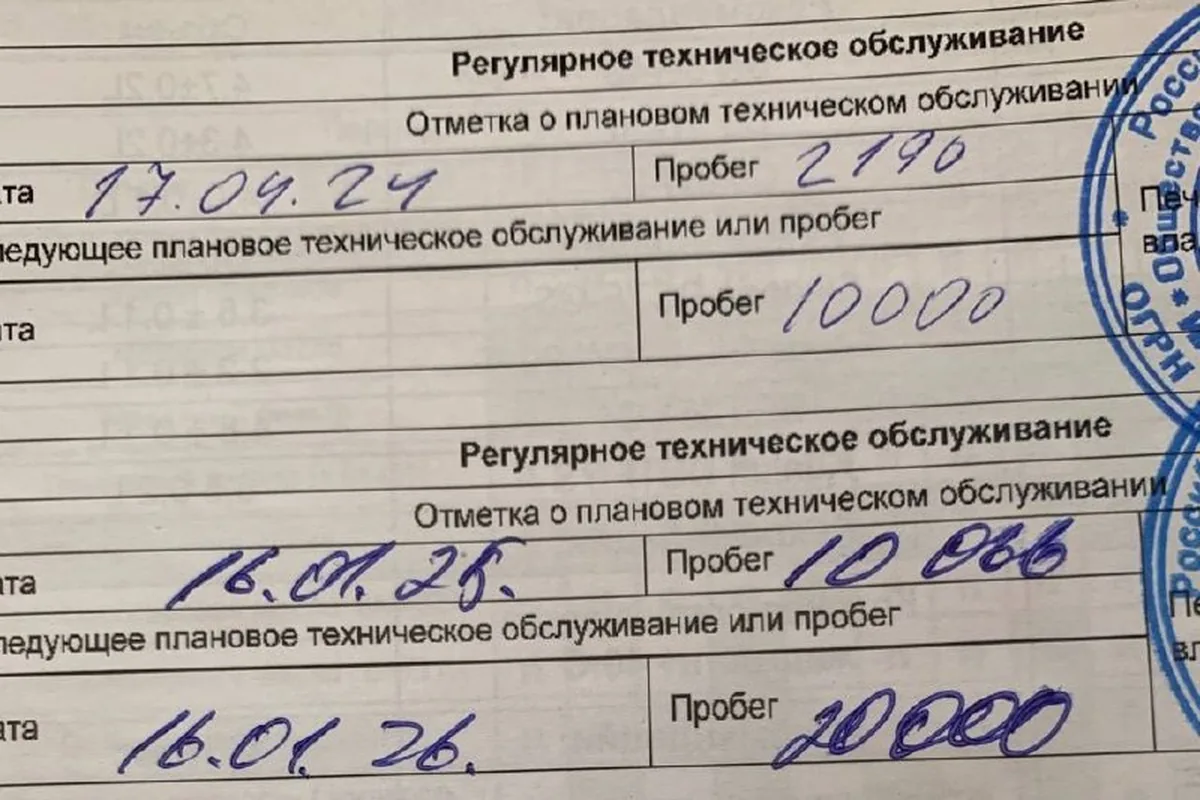 Регулярное техническое обслуживание
Отметка о плановом техническом обслуживании
та 17.04.24 Пробег 2190
ледующее плановое техническое обслуживание или пробег
та Пробег 10000
Регулярное техническое обслуживание
Отметка о плановом техническом обслуживании
ата 16.01.25. Пробег 10 066
ледующее плановое техническое обслуживание или пробег
ата 16.01.26. Пробег 20000
Печ
вла
Росси
Обществ
ОГРН
Росси
Пе
вл